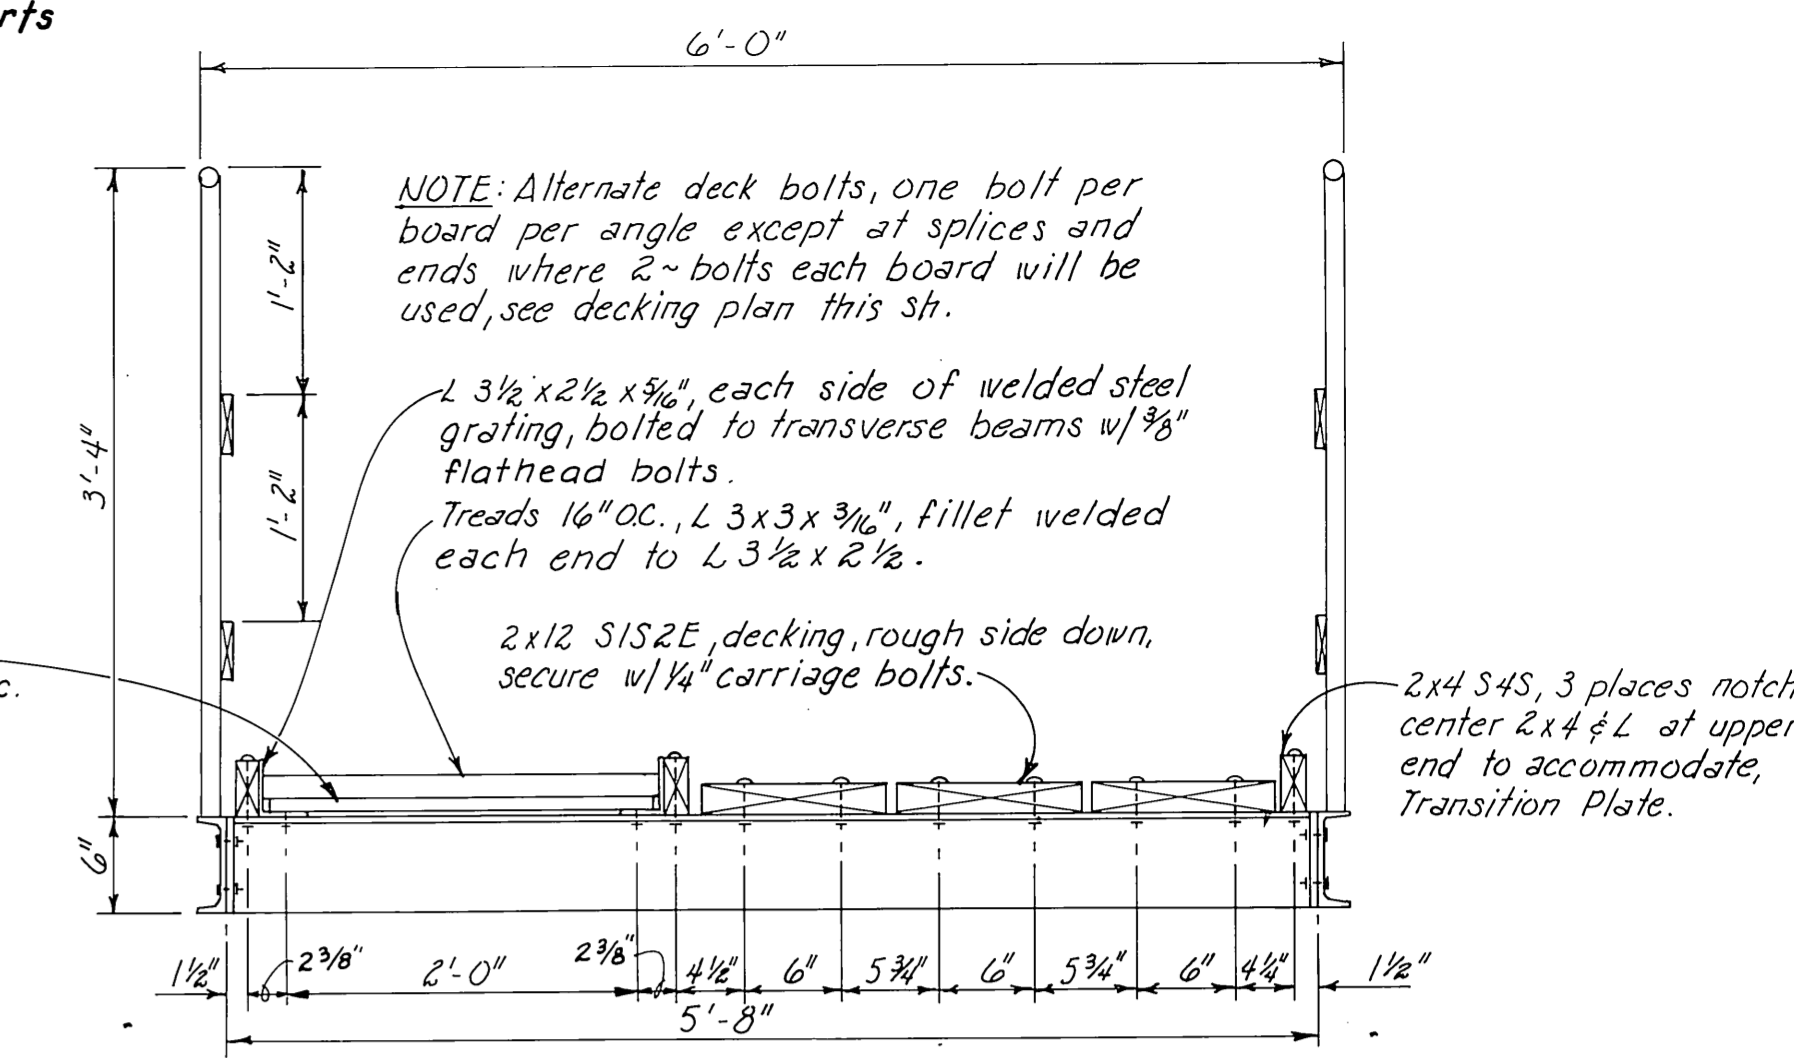 rts
6'-0"
NOTE: Alternate deck bolts, one bolt per
board per angle except at splices and
ends where 2~bolts each board will be
used, see decking plan this sh.
1'-2"
3'-4"
1'-2"
L 3½ x 2½ x 5/16", each side of welded steel
grating, bolted to transverse beams w/ 3/8"
flathead bolts.
Treads 16" O.C., L 3 x 3 x 3/16", fillet welded
each end to L 3½ x 2½.
2x12 S1S2E, decking, rough side down,
secure w/ ¼" carriage bolts.
c.
2x4 S4S, 3 places notch
center 2x4 & L at upper
end to accommodate,
Transition Plate.
6"
1½" 2 3/8" 2'-0" 2 3/8" 4½" 6" 5¾" 6" 5¾" 6" 4¼" 1½"
5'-8"